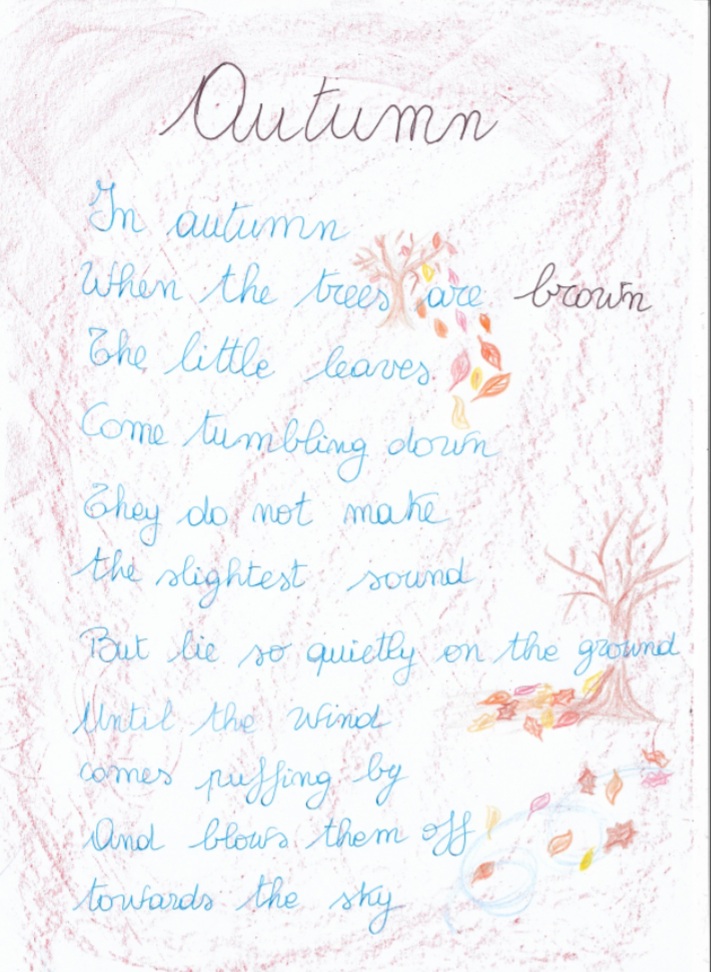 Autumn
In autumn
When the trees are brown
The little leaves
Come tumbling down
They do not make
the slightest sound
But lie so quietly on the ground
Until the wind
comes puffing by
And blows them off
towards the sky